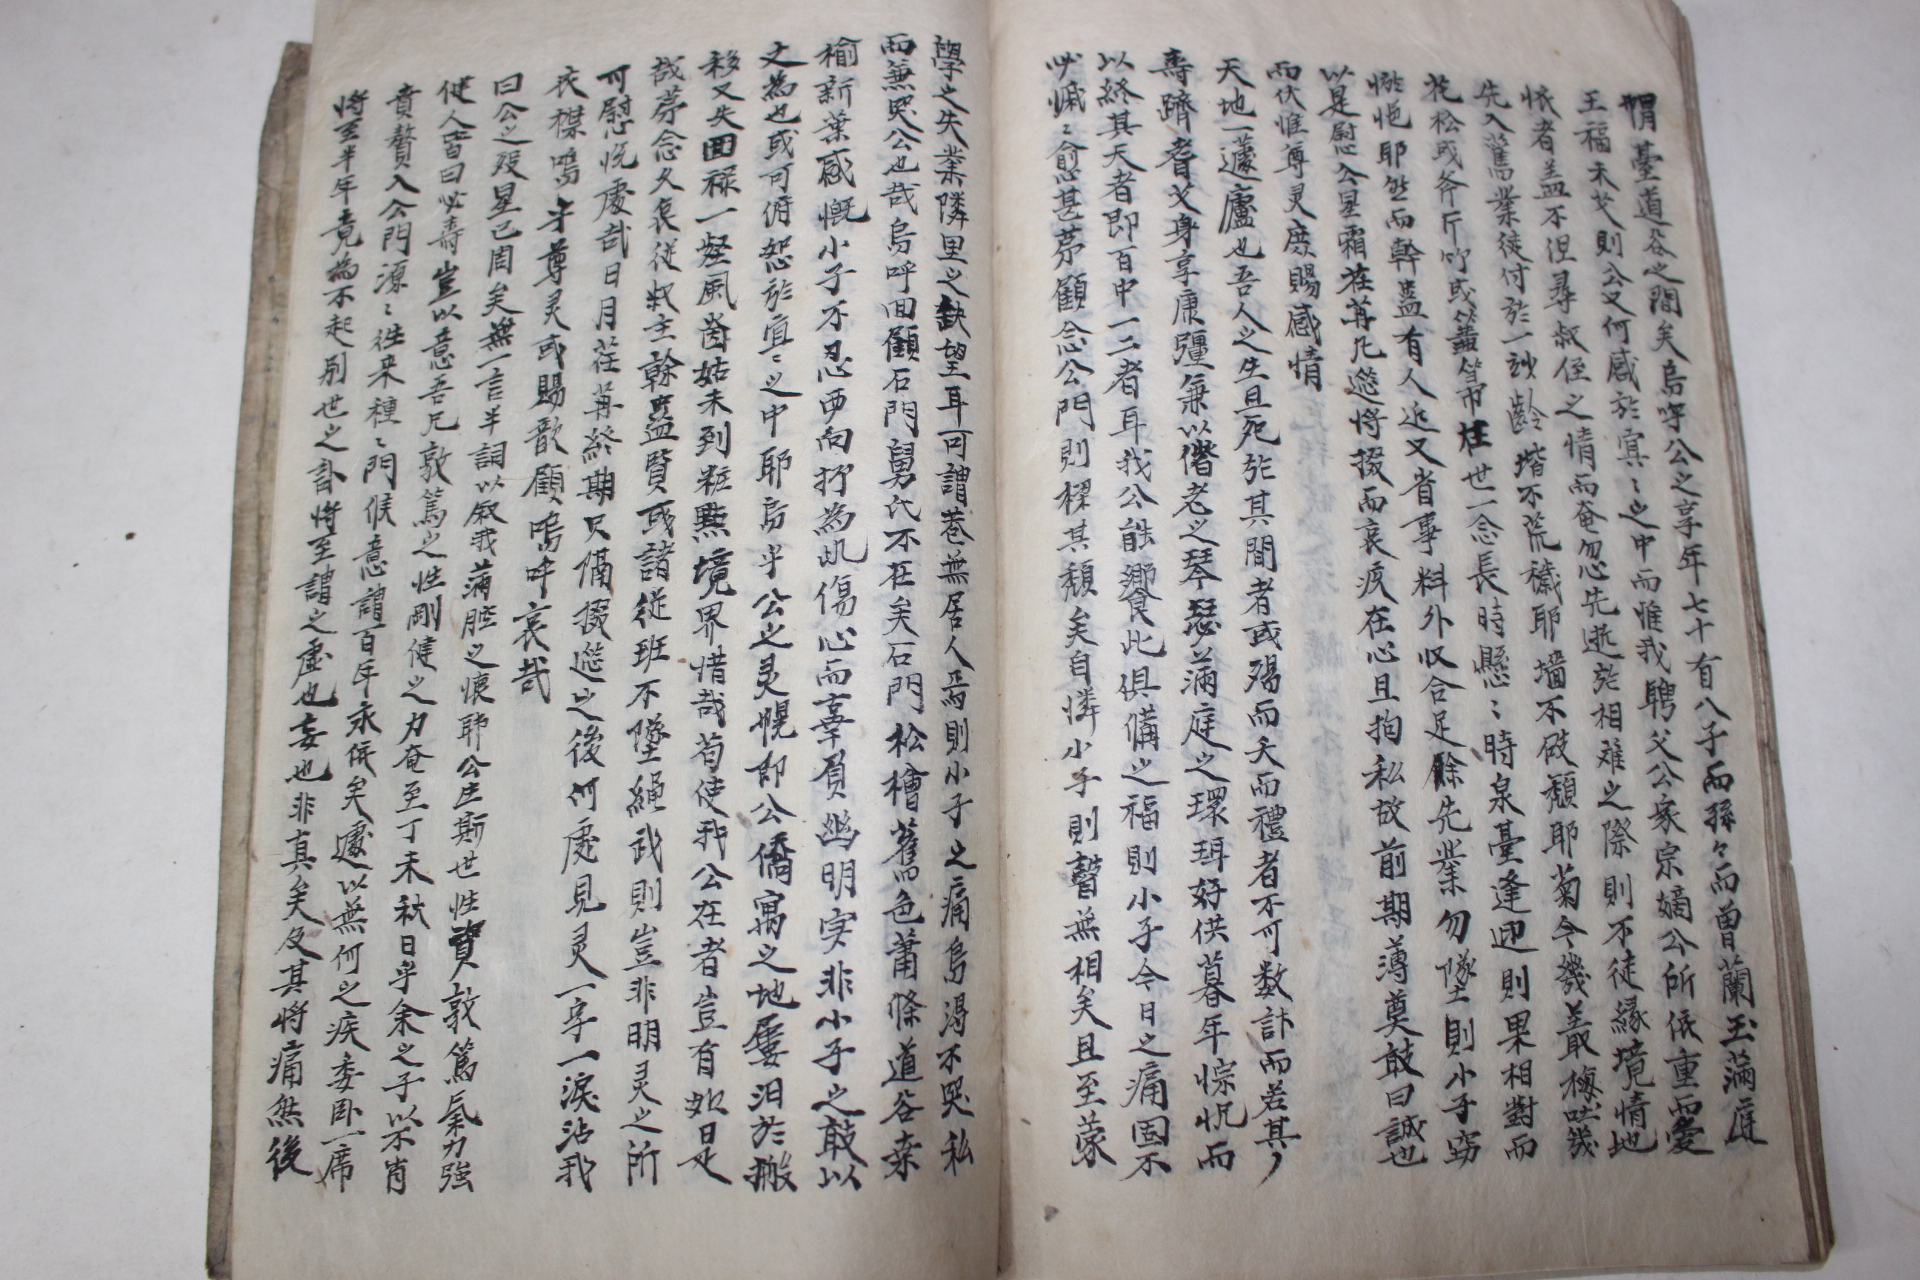 惟臺道谷之間矣烏乎公之享年七十有八子而孫々而曾蘭玉滿庭
王福未艾則公又何感於冥〻之中而惟我聘父公家宗嫡公所依重而愛
恢者盖不但尋叔侄之情而奄忽先逝於相难之際則不徒緣境情地
先入舊業徒付於一沙齡堦不荒穢耶墻不敗頹耶菊今幾叢梅幾
花松或斧斤竹或簫笛在世一念長時懸〻時泉臺逢迎則果相對而
惚悒耶然而幹盖有人近又省事料外収合足餘先業勿墜則小子窃
以是慰公星霜荏苒凡筵將掇而哀疚在心且拘私故前期薄奠敢曰誠也
而伏惟尊灵庶賜感情
天地一蘧廬也吾人之生且死於其間者或殤而夭而禮者不可数計而若其
壽躋耆艾身享康彊兼以偕老之琴瑟滿庭之環珥好供暮年悰怳而
以終其天者即百中一二者耳我公能饗此俱備之福則小子今日之痛固不
必慽〻愈甚第顧念公門則樑其頹矣自憐小子則瞽無相矣且至蒙
學之失業隣里之缺望耳可謂巷無居人焉則小子之痛烏得不哭私
而兼哭公也哉烏呼回顧石門舅氏不在矣石門松檜舊色蕭條道谷桑
榆新葉感慨小子不忍西向抒為此傷心而辜負幽明实非小子之敢以
文為也或可俯恕於冥〻之中耶烏乎公之灵幌即公僑寓之地屡汨於搬
移又失回祿一壑風菑姑未到粧點境界惜哉苟使我公在者豈有如是
哉第念久哀従叔主幹盖賢或諸従班不墜繩武則豈非明灵之所
可慰悦處哉日月荏苒終期只隔掇筵之後何處見灵一字一淚沾我
衣襟嗚乎尊灵或賜歆顧嗚呼哀哉
曰公之歿星已周矣無一言半詞以敍我滿腔之懷耶公庄斯世性資敦篤氣力强
健人皆曰必壽豈以意吾兄敦篤之性剛健之力奄至丁未秋日乎余之子以不肖
賁贅入公門源〻徃来種〻門候意謂百年永依矣遽以無何之疾委卧一席
將至半年竟為不起别世之訃將至謂之虛也妄也非真矣及其將痛然後